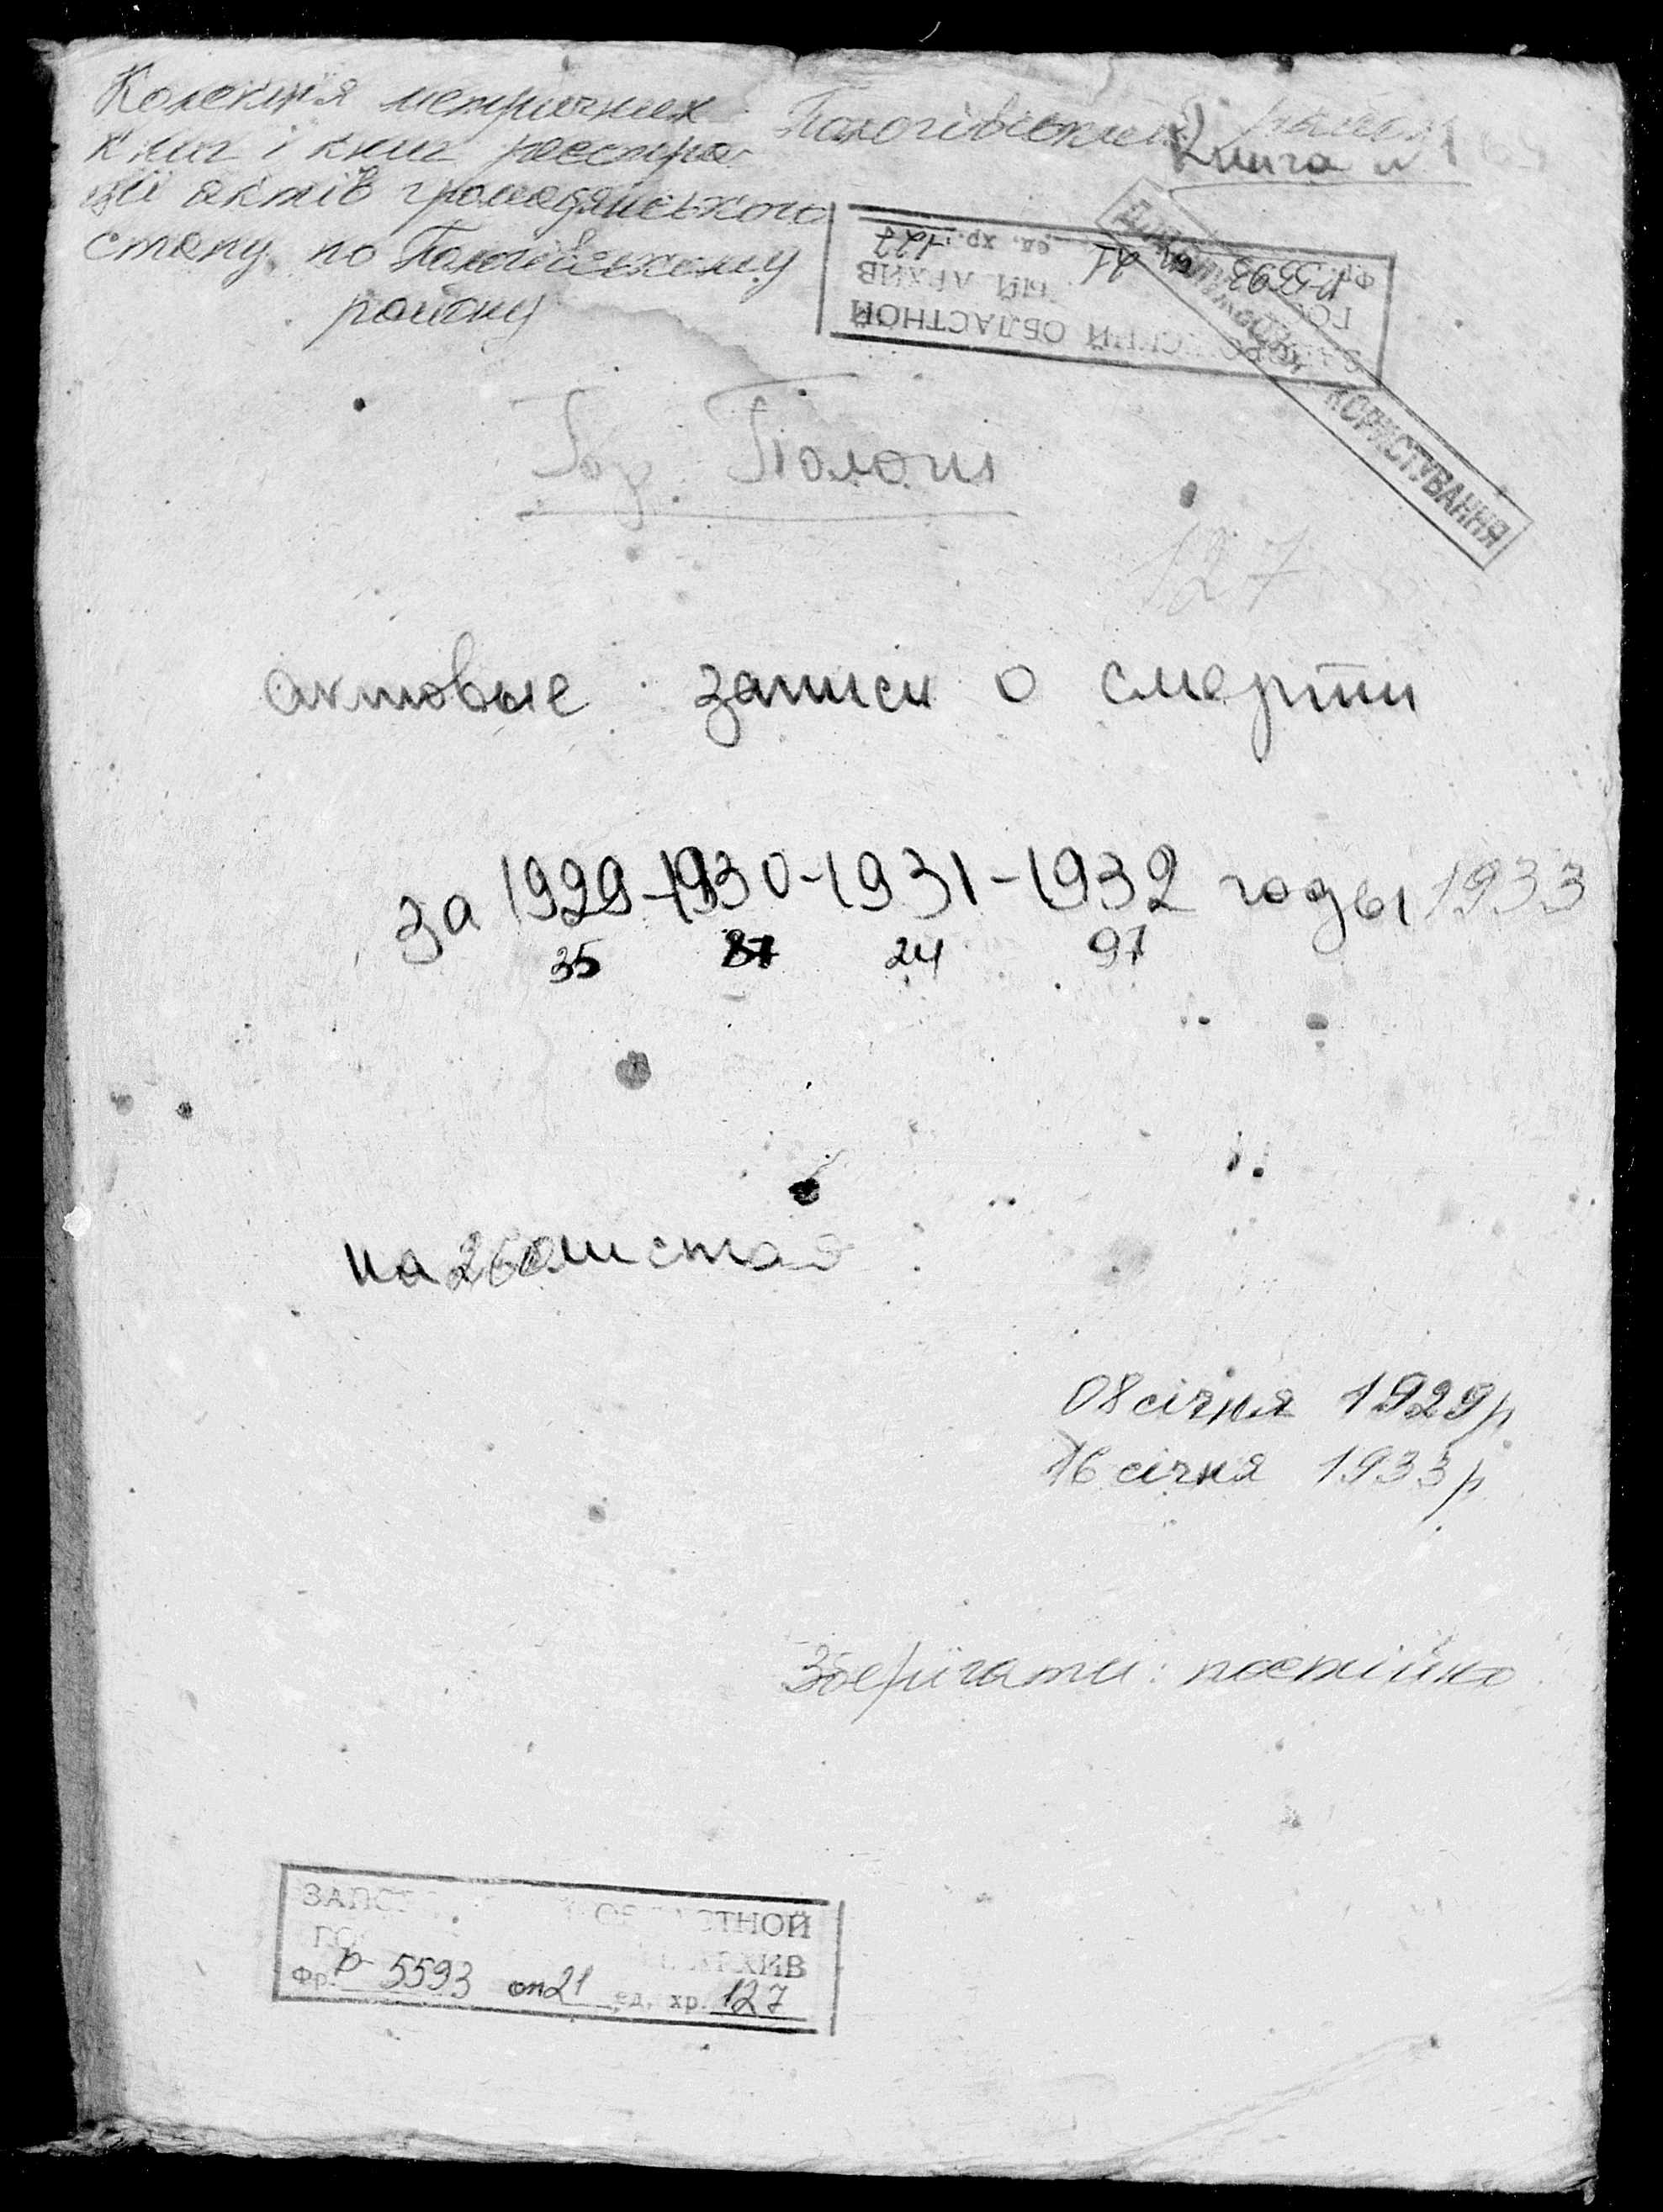 Колекція метричних
книг і книг реєстра-
ції актів громадянського
стану по Пологівському
району
Пологівський район
Книга №1
Фр. Р-5593 оп. 21 ед. хр. 127
ОБЛАСТНОЙ
АРХИВ
КОРИСТУВАННЯ
Гор. Пологи
127
актовые записи о смерти
за 1929-1930-1931-1932 годы 1933
35 87 24 97
на 260 листах
08 січня 1929р
16 січня 1933р
Зберігати: постійно
ОБЛАСТНОЙ
АРХИВ
Фр. р-5593 оп 21 ед. хр. 127